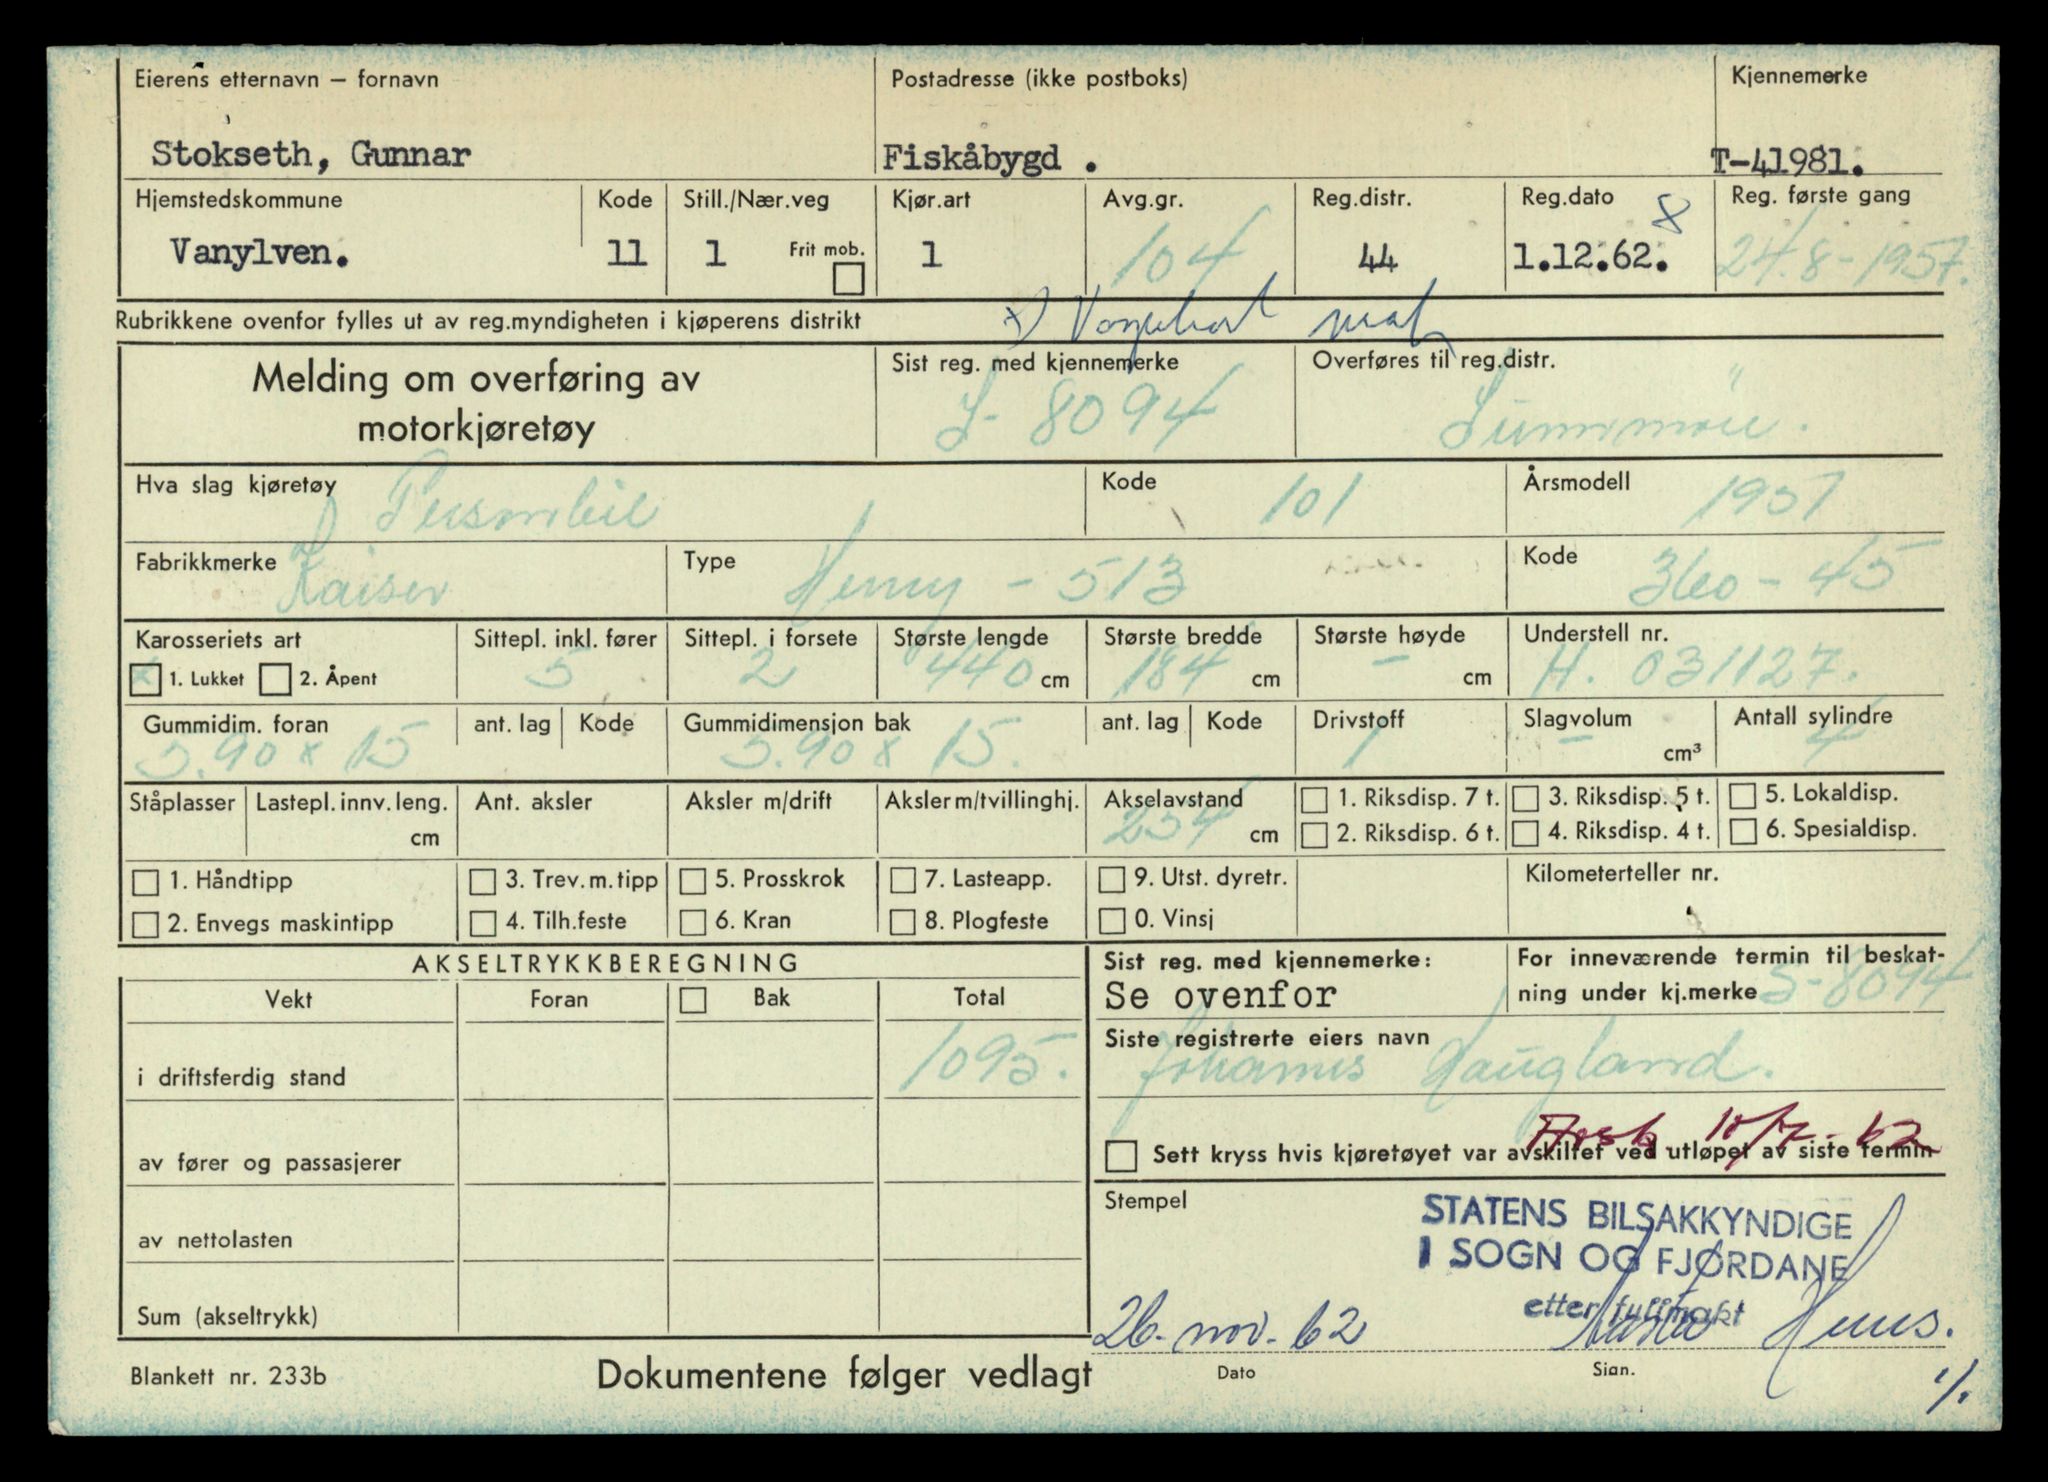 Eierens etternavn – fornavn
Postadresse (ikke postboks)
Kjennemerke
Stokseth, Gunnar
Fiskåbygd .
T-41981.
Hjemstedskommune
Kode
Still./Nær.veg
Kjør.art
Avg.gr.
Reg.distr.
Reg.dato
Reg. første gang
Vanylven.
11
1
Frit mob.
1
104
44
1.12.62.
8
24.8-1957.
Rubrikkene ovenfor fylles ut av reg.myndigheten i kjøperens distrikt
x) Vognkort
Melding om overføring av
motorkjøretøy
Sist reg. med kjennemerke
S-8094
Overføres til reg.distr.
Sunnmöre.
Hva slag kjøretøy
Personbil
Kode
101
Årsmodell
1951
Fabrikkmerke
Kaiser
Type
Henry - 513
Kode
360-45
Karosseriets art
Sittepl. inkl. fører
Sittepl. i forsete
Største lengde
Største bredde
Største høyde
Understell nr.
x 1. Lukket
2. Åpent
5
2
440 cm
184 cm
– cm
H. 031127.
Gummidim. foran
ant. lag
Kode
Gummidimensjon bak
ant. lag
Kode
Drivstoff
Slagvolum
Antall sylindre
5.90 x 15
5.90 x 15.
1
– cm³
4
Ståplasser
Lastepl. innv. leng.
cm
Ant. aksler
Aksler m/drift
Aksler m/tvillinghj.
Akselavstand
254 cm
1. Riksdisp. 7 t.
3. Riksdisp. 5 t.
5. Lokaldisp.
2. Riksdisp. 6 t.
4. Riksdisp. 4 t.
6. Spesialdisp.
1. Håndtipp
3. Trev. m. tipp
5. Prosskrok
7. Lasteapp.
9. Utst. dyretr.
Kilometerteller nr.
2. Envegs maskintipp
4. Tilh.feste
6. Kran
8. Plogfeste
0. Vinsj
AKSELTRYKKBEREGNING
Vekt
Foran
Bak
Total
i driftsferdig stand
1095.
av fører og passasjerer
av nettolasten
Sum (akseltrykk)
Sist reg. med kjennemerke:
Se ovenfor
For inneværende termin til beskat-
ning under kj.merke S-8094
Siste registrerte eiers navn
Johannes Haugland.
10/7-62
Sett kryss hvis kjøretøyet var avskiltet ved utløpet av siste termin
Stempel
STATENS BILSAKKYNDIGE
I SOGN OG FJORDANE
etter fullmakt
26. nov. 62
Dato
Sign.
Blankett nr. 233b
Dokumentene følger vedlagt
1/.